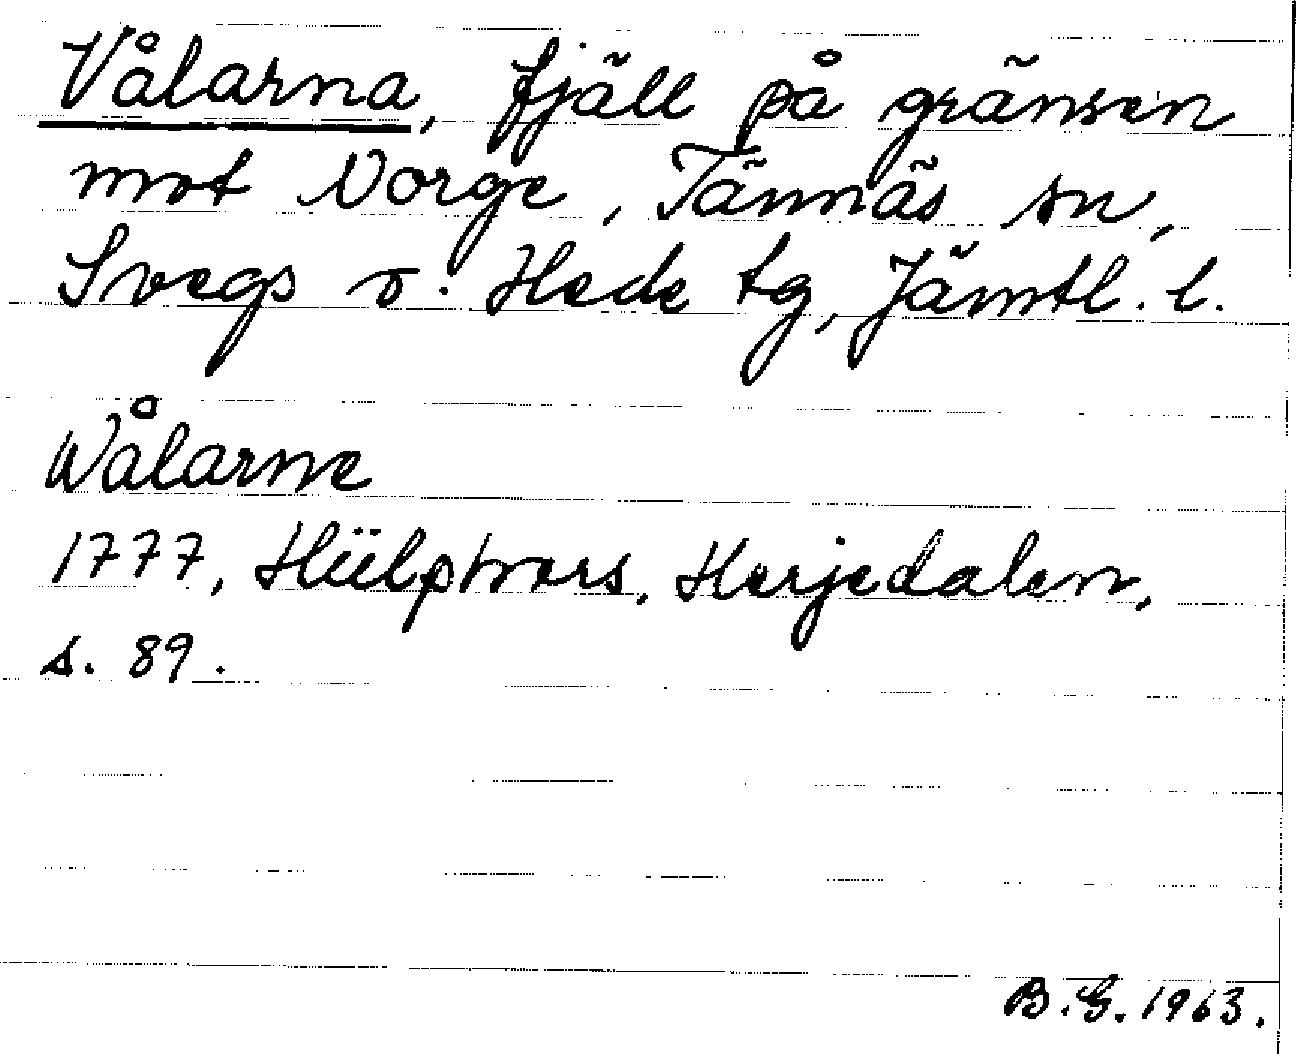 Vålarna, fjäll på gränsen
mot Norge, Tännäs sn,
Svegs o. Hede tg, Jämtl. l.
Wålarne
1777, Hülphers, Herjedalen,
s. 89.
B.G. 1963.